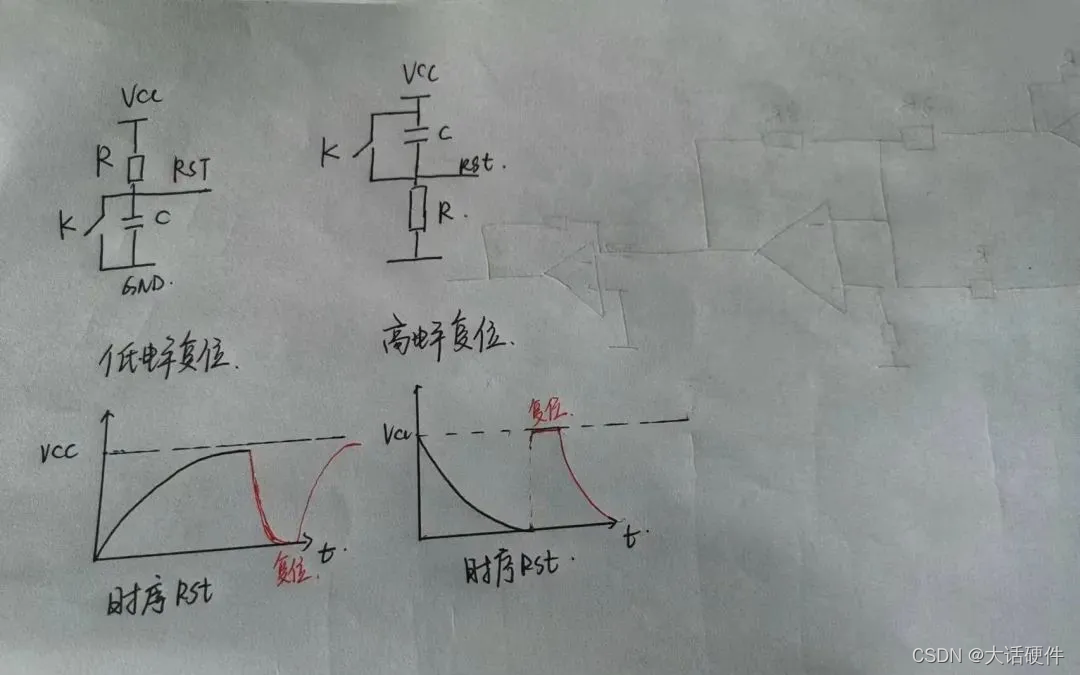 VCC
R
RST
K
C
GND.
低电平复位.
VCC
K
C
RSt.
R.
高电平复位.
VCC
t.
复位.
时序 RSt
VCC
复位.
t.
时序 RSt.
CSDN @大话硬件